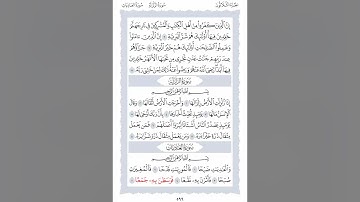 الجزء الثلاثون سورة الزلزلة سورة العاديات
إِنَّ الَّذِينَ كَفَرُوا مِنْ أَهْلِ الْكِتَٰبِ وَالْمُشْرِكِينَ فِي نَارِ جَهَنَّمَ
خَٰلِدِينَ فِيهَا أُولَٰئِكَ هُمْ شَرُّ الْبَرِيَّةِ ۝ إِنَّ الَّذِينَ ءَامَنُوا
وَعَمِلُوا الصَّٰلِحَٰتِ أُولَٰئِكَ هُمْ خَيْرُ الْبَرِيَّةِ ۝ جَزَاؤُهُمْ
عِندَ رَبِّهِمْ جَنَّٰتُ عَدْنٍ تَجْرِي مِن تَحْتِهَا الْأَنْهَٰرُ خَٰلِدِينَ
فِيهَا أَبَدًا رَّضِيَ اللَّهُ عَنْهُمْ وَرَضُوا عَنْهُ ذَٰلِكَ لِمَنْ خَشِيَ رَبَّهُ ۝
سورة الزلزلة
بِسْمِ اللَّهِ الرَّحْمَٰنِ الرَّحِيمِ
إِذَا زُلْزِلَتِ الْأَرْضُ زِلْزَالَهَا ۝ وَأَخْرَجَتِ الْأَرْضُ أَثْقَالَهَا ۝ وَقَالَ
الْإِنسَٰنُ مَا لَهَا ۝ يَوْمَئِذٍ تُحَدِّثُ أَخْبَارَهَا ۝ بِأَنَّ رَبَّكَ أَوْحَىٰ لَهَا ۝
يَوْمَئِذٍ يَصْدُرُ النَّاسُ أَشْتَاتًا لِّيُرَوْا أَعْمَٰلَهُمْ ۝ فَمَن يَعْمَلْ
مِثْقَالَ ذَرَّةٍ خَيْرًا يَرَهُ ۝ وَمَن يَعْمَلْ مِثْقَالَ ذَرَّةٍ شَرًّا يَرَهُ ۝
سورة العاديات
بِسْمِ اللَّهِ الرَّحْمَٰنِ الرَّحِيمِ
وَالْعَٰدِيَٰتِ ضَبْحًا ۝ فَالْمُورِيَٰتِ قَدْحًا ۝ فَالْمُغِيرَٰتِ
صُبْحًا ۝ فَأَثَرْنَ بِهِ نَقْعًا ۝ فَوَسَطْنَ بِهِ جَمْعًا ۝
٥٩٩